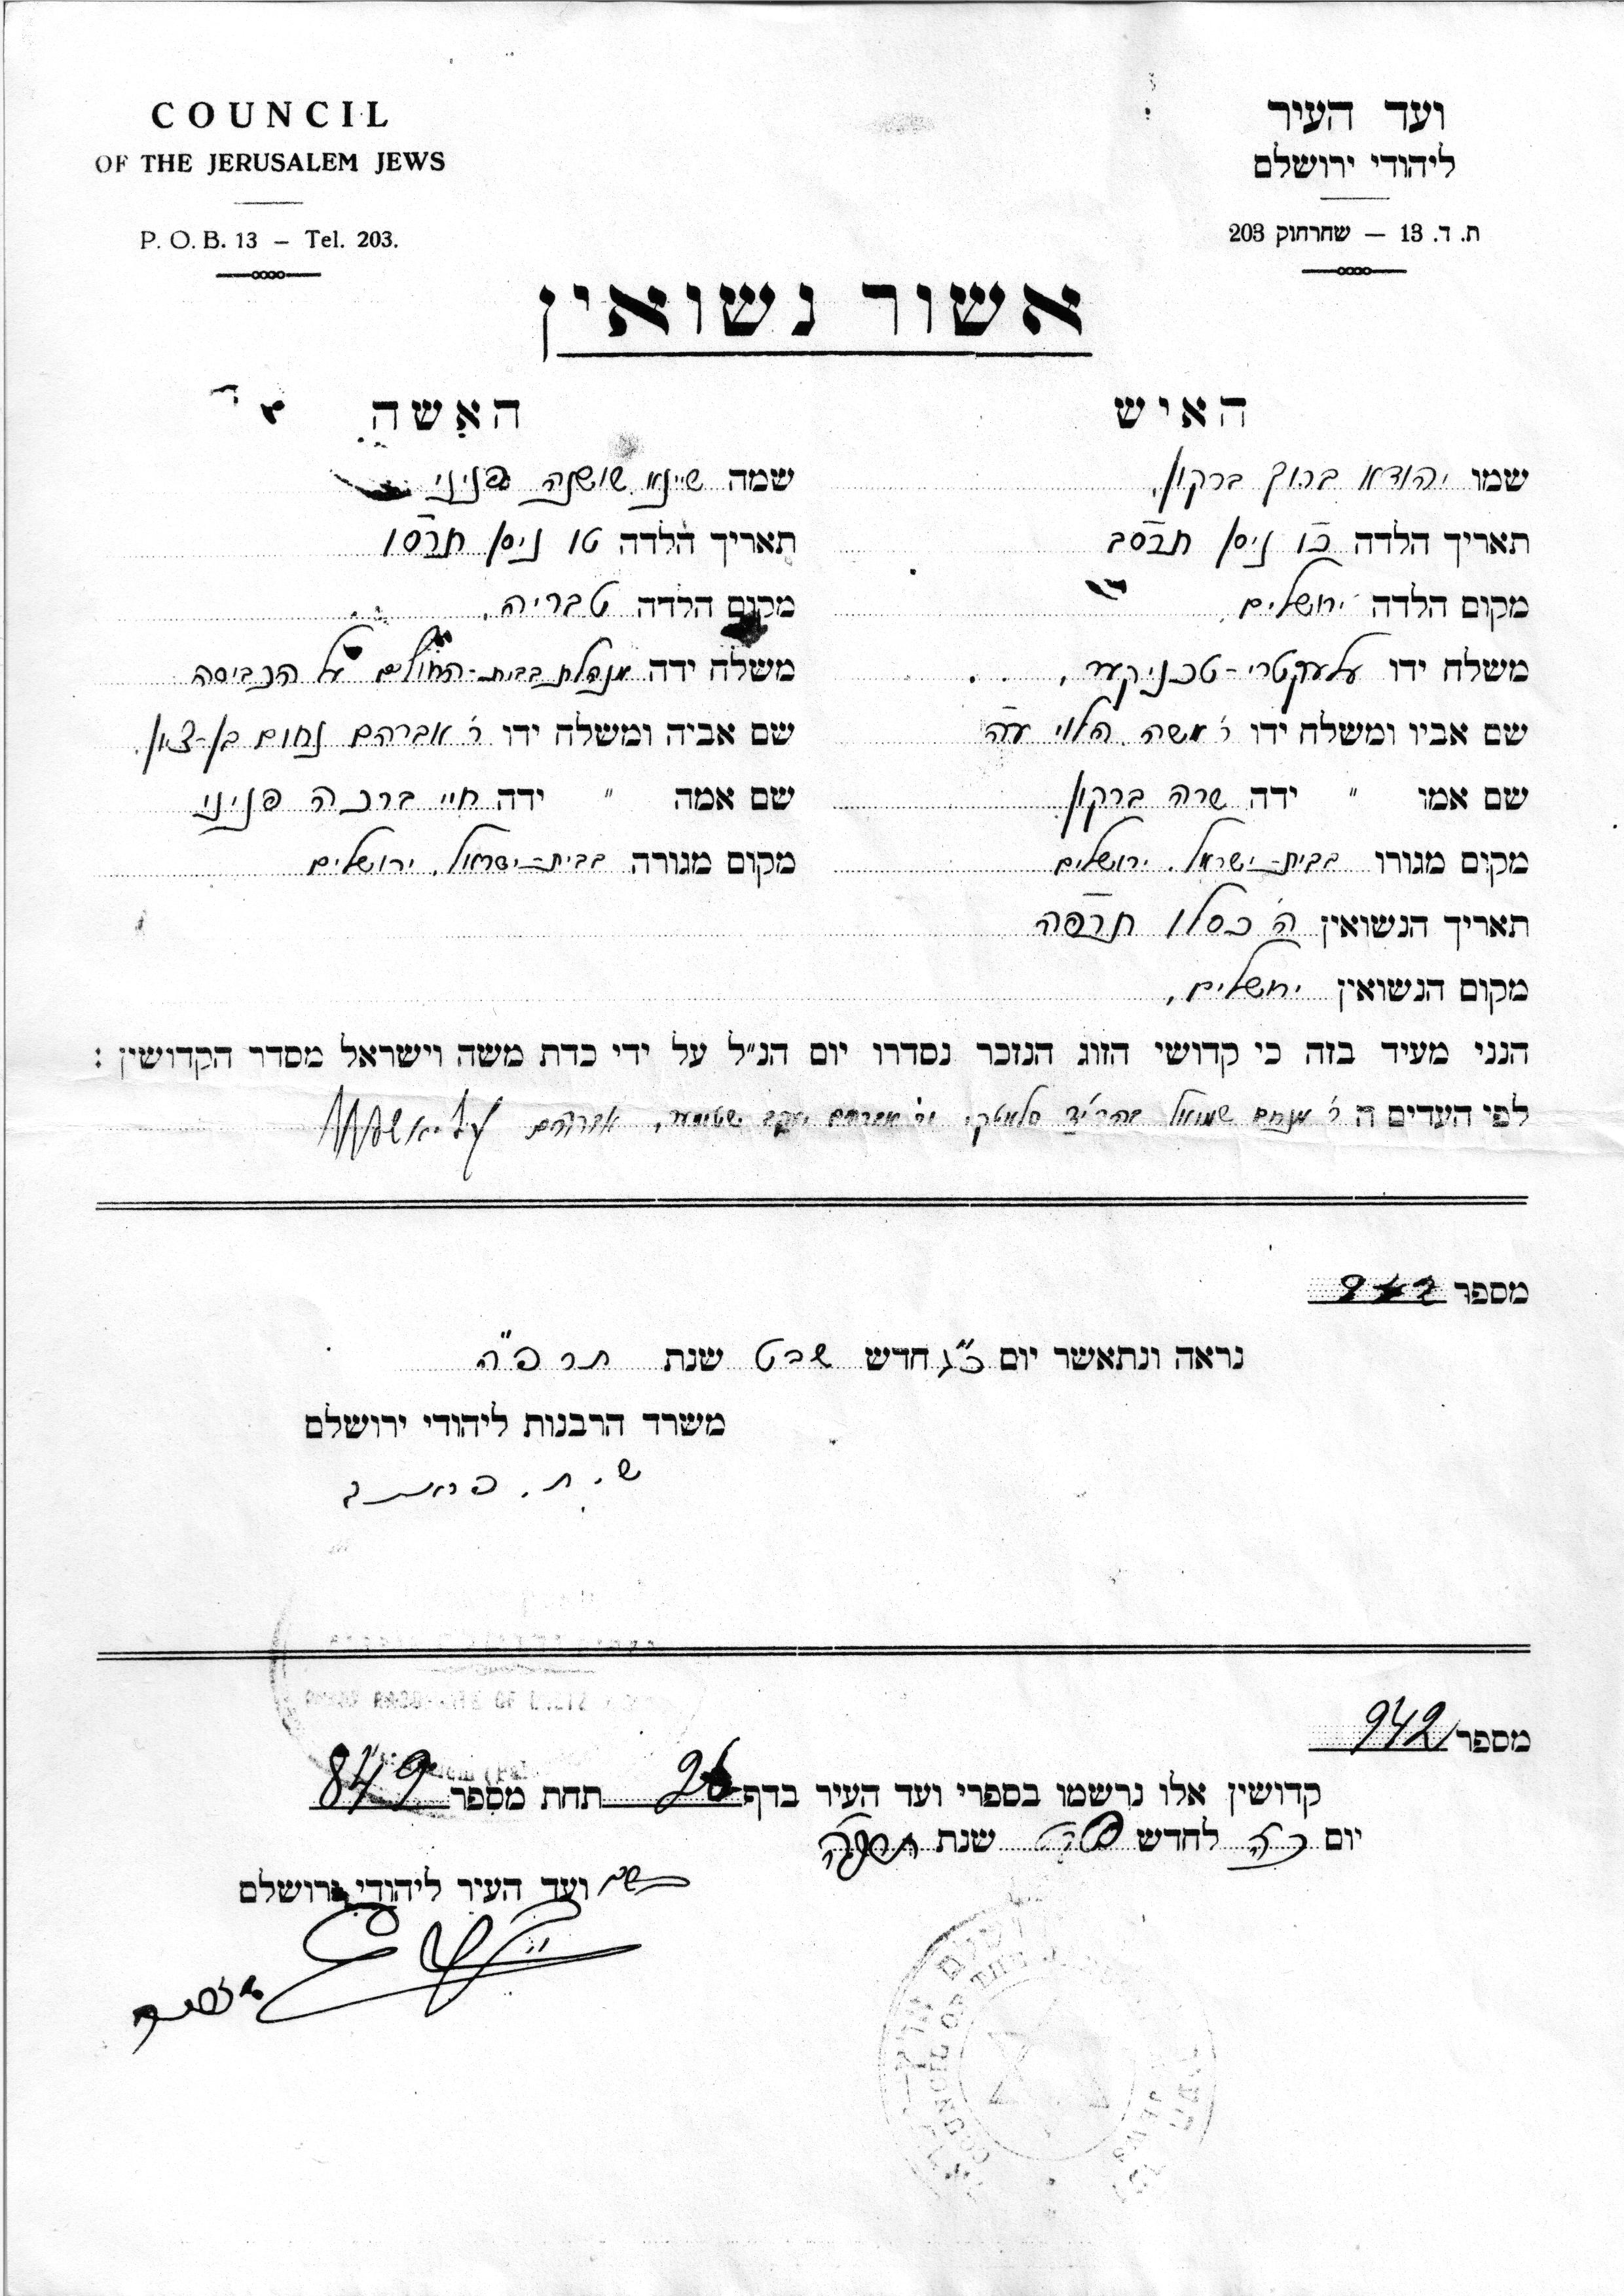 COUNCIL
OF THE JERUSALEM JEWS
P. O. B. 13 – Tel. 203.
ועד העיר
ליהודי ירושלם
ת. ד. 13 – שחרחוק 203
אשור נשואין
האיש
שמו יהודא ברוך ברקון,
תאריך הלדה כ״ו ניסן תרסב
מקום הלדה ירושלים,
משלח ידו עלעקטרי-טכניקער,
שם אביו ומשלח ידו ר׳ משה הלוי ע״ה
שם אמו ״ ידה שרה ברקון
מקום מגורו בבית-ישראל, ירושלים
תאריך הנשואין ה׳ כסלו תרפה
מקום הנשואין ירושלים,
האשה
שמה שיינא שושנה פניני
תאריך הלדה טו ניסן תרסו
מקום הלדה טבריה,
משלח ידה מנהלת בבית-החולים על הכביסה
שם אביה ומשלח ידו ר׳ אברהם נחום בן-ציון,
שם אמה ״ ידה חיי ברכה פניני
מקום מגורה בבית-ישראל, ירושלים
הנני מעיד בזה כי קדושי הזוג הנזכר נסדרו יום הנ״ל על ידי כדת משה וישראל מסדר הקדושין :
לפי העדים ה ר׳ מנחם שמואל אברהם יעקב אברהם
מספר
נראה ונתאשר יום כ״ג חדש שבט שנת תרפ״ה
משרד הרבנות ליהודי ירושלם
מספר 942
קדושין אלו נרשמו בספרי ועד העיר בדף 26 תחת מספר 849
יום כ״ה לחדש שבט שנת תרפה
בשם ועד העיר ליהודי ירושלם
COUNCIL OF THE JERUSALEM JEWS